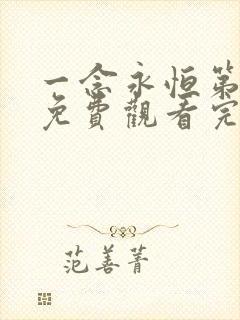 一念永恒第
免費觀看完
范善菁